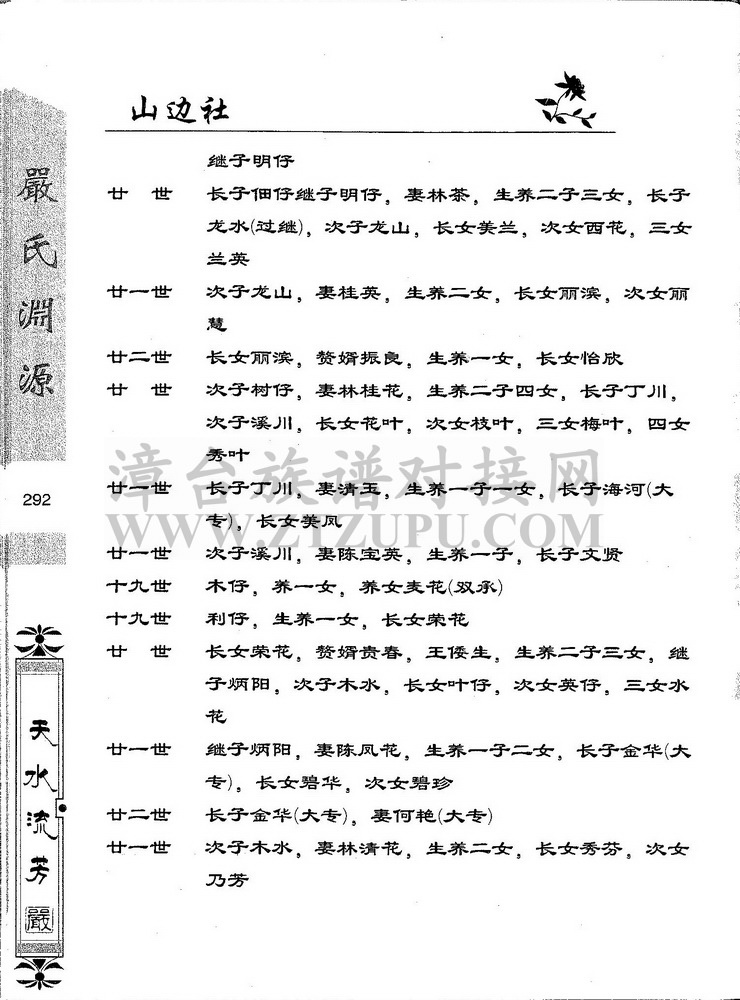 山边社
继子明仔
廿 世 长子佃仔继子明仔，妻林茶，生养二子三女，长子
龙水(过继)，次子龙山，长女美兰，次女西花，三女
兰英
廿一世 次子龙山，妻桂英，生养二女，长女丽滨，次女丽
慧
廿二世 长女丽滨，赘婿振良，生养一女，长女怡欣
廿 世 次子树仔，妻林桂花，生养二子四女，长子丁川，
次子溪川，长女花叶，次女枝叶，三女梅叶，四女
秀叶
廿一世 长子丁川，妻清玉，生养一子一女，长子海河(大
专)，长女美凤
廿一世 次子溪川，妻陈宝英，生养一子，长子文贤
十九世 木仔，养一女，养女麦花(双承)
十九世 利仔，生养一女，长女荣花
廿 世 长女荣花，赘婿贵春，王倭生，生养二子三女，继
子炳阳，次子木水，长女叶仔，次女英仔，三女水
花
廿一世 继子炳阳，妻陈凤花，生养一子二女，长子金华(大
专)，长女碧华，次女碧珍
廿二世 长子金华(大专)，妻何艳(大专)
廿一世 次子木水，妻林清花，生养二女，长女秀芬，次女
乃芳
嚴氏淵源
292
天水流芳
嚴
漳台族谱对接网
WWW.ZTZUPU.COM